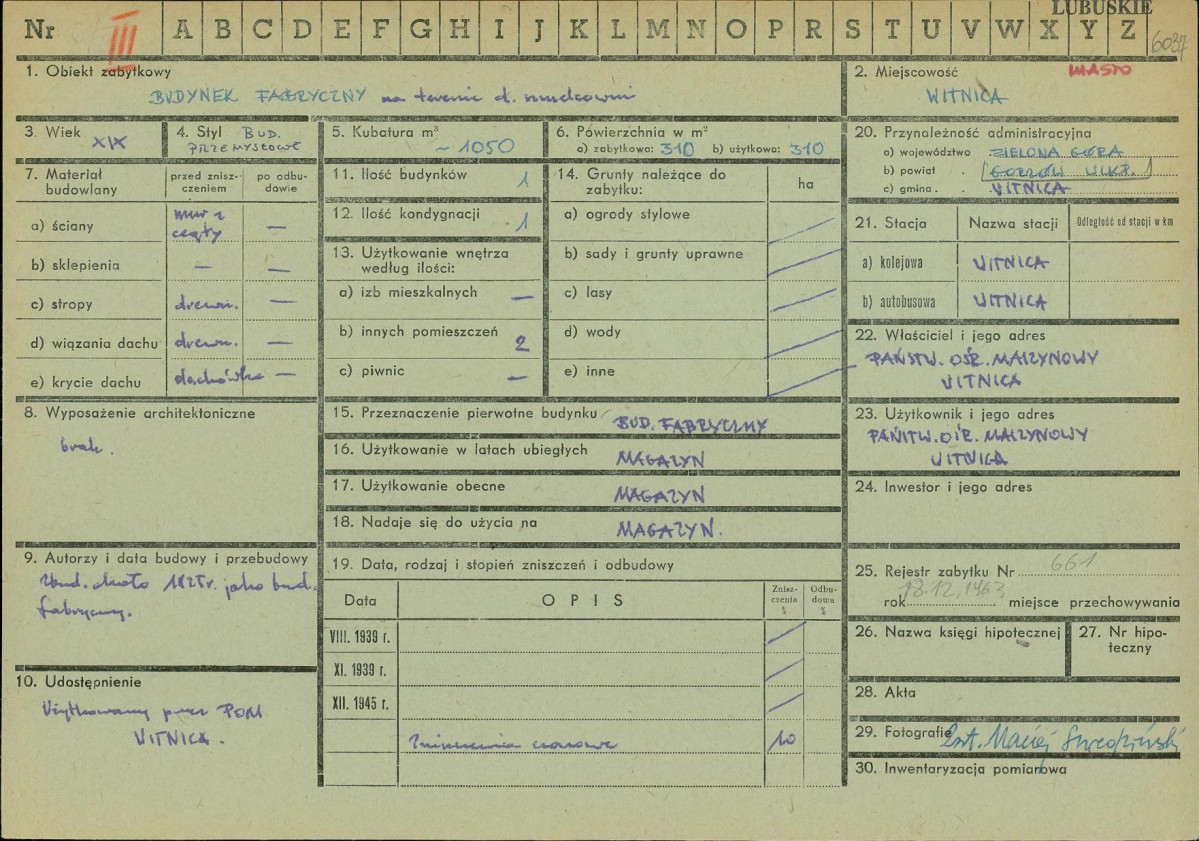 LUBUSKIE
Nr III A B C D E F G H I J K L M N O P R S T U V W X Y Z 6037
1. Obiekt zabytkowy
BUDYNEK FABRYCZNY na terenie d.
2. Miejscowość MIASTO
WITNICA
3. Wiek
XIX
4. Styl BUD.
PRZEMYSŁOWE
5. Kubatura m³
~ 1050
6. Powierzchnia w m²
a) zabytkowa: 310 b) użytkowa: 310
7. Materiał budowlany
przed znisz-
czeniem
po odbu-
dowie
a) ściany mur z cegły —
b) sklepienia — —
c) stropy drewn. —
d) wiązania dachu drewn. —
e) krycie dachu dachówka —
8. Wyposażenie architektoniczne
brak.
9. Autorzy i data budowy i przebudowy
Zbud. około 182 r. jako bud.
fabryczny.
10. Udostępnienie
Użytkowany przez POM
WITNICA.
11. Ilość budynków 1
12. Ilość kondygnacji 1
13. Użytkowanie wnętrza
według ilości:
a) izb mieszkalnych —
b) innych pomieszczeń 2
c) piwnic —
14. Grunty należące do
zabytku: ha
a) ogrody stylowe
b) sady i grunty uprawne
c) lasy
d) wody
e) inne
15. Przeznaczenie pierwotne budynku BUD. FABRYCZNY
16. Użytkowanie w latach ubiegłych MAGAZYN
17. Użytkowanie obecne MAGAZYN
18. Nadaje się do użycia na MAGAZYN.
19. Data, rodzaj i stopień zniszczeń i odbudowy
Data OPIS
Znisz-
czenia
%
Odbu-
dowa
%
VIII. 1939 r.
XI. 1939 r.
XII. 1945 r.
Zniszczenia czasowe 10
20. Przynależność administracyjna
a) województwo ZIELONA GÓRA
b) powiat . GORZÓW WLKP.
c) gmina . WITNICA
21. Stacja Nazwa stacji Odległość od stacji w km
a) kolejowa WITNICA
b) autobusowa WITNICA
22. Właściciel i jego adres
PAŃSTW. OŚR. MASZYNOWY
WITNICA
23. Użytkownik i jego adres
PAŃSTW. OŚR. MASZYNOWY
WITNICA
24. Inwestor i jego adres
25. Rejestr zabytku Nr 661
rok 18.12.1963 miejsce przechowywania
26. Nazwa księgi hipotecznej
27. Nr hipo-
teczny
28. Akta
29. Fotografie Maciej
30. Inwentaryzacja pomiarowa